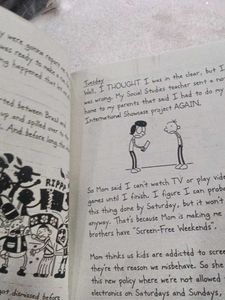 y were gonna report
was ready to make
ng happened that
rted between Brazil and
up and spilled over to the
. And before long the
RIPPA
got dismissed before
Tuesday
Well, I THOUGHT I was in the clear, but I
was wrong. My Social Studies teacher sent a no
home to my parents that said I had to do my
International Showcase project AGAIN.
So Mom said I can't watch TV or play vide
games until I finish. I figure I can proba
this thing done by Saturday, but it won't
anyway. That's because Mom is making me
brothers have "Screen-Free Weekends".
Mom thinks us kids are addicted to scree
they're the reason we misbehave. So she
this new policy where we're not allowed
electronics on Saturdays and Sundays,